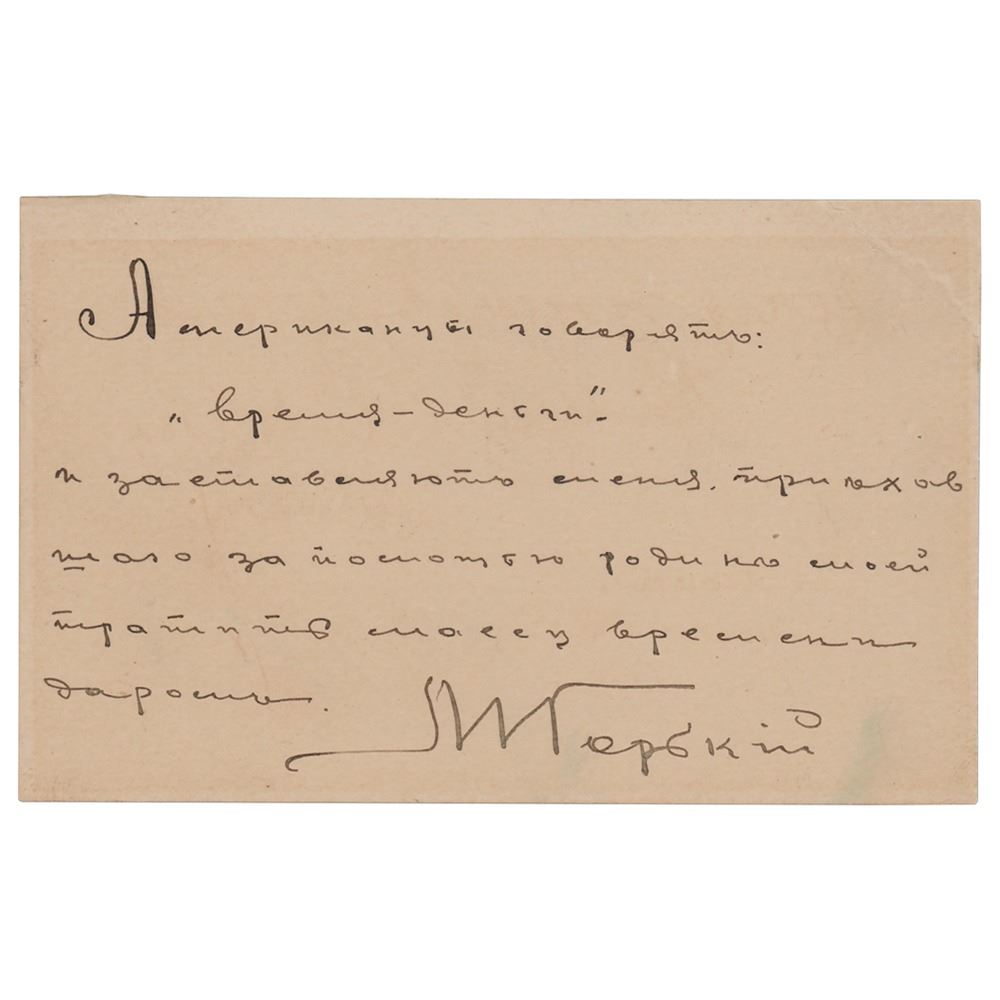 Американцы говорятъ:
„время – деньги" –
и заставляютъ меня, пріѣхав
шаго за помощью родинѣ моей
тратить массу времени
даромъ.
М Горькій